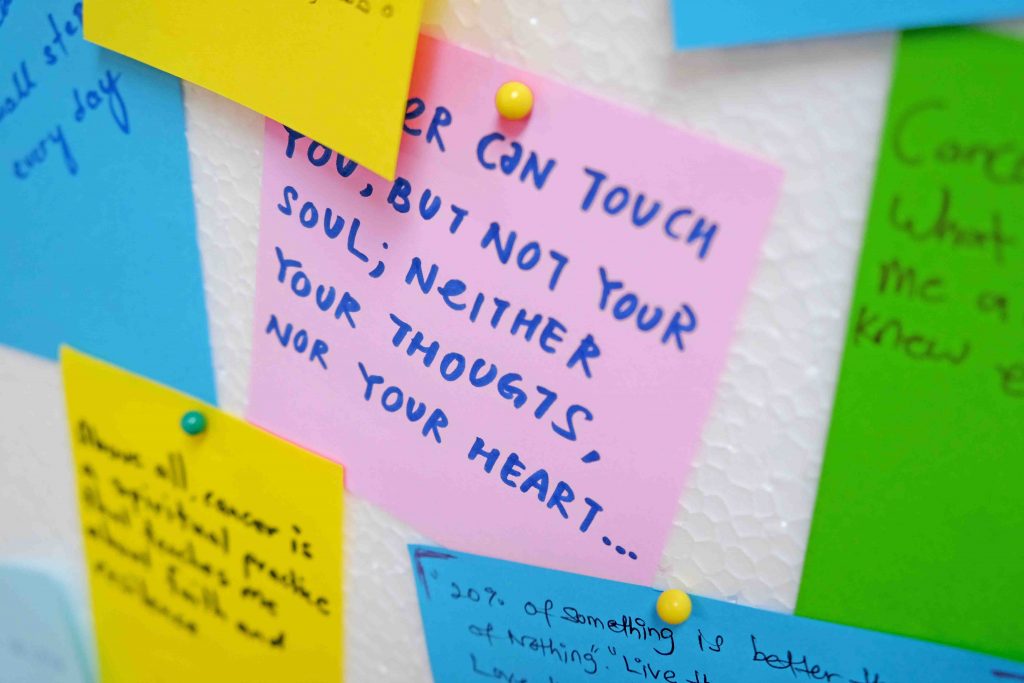 small step
every day
ER CAN TOUCH
YOU, BUT NOT YOUR
SOUL; NEITHER
YOUR THOUGTS,
NOR YOUR HEART...
What
me a
knew
Above all, cancer is
a spiritual practice
that teaches me
about faith and
resilience
"20% of something is better
of Nothing". "Live